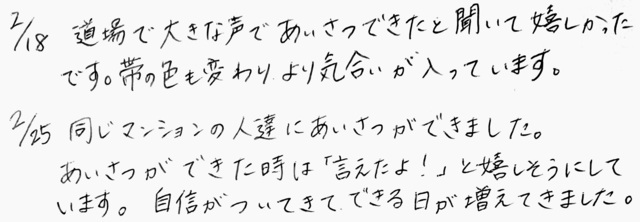 2/18 道場で大きな声であいさつできたと聞いて嬉しかった
です。帯の色も変わり より気合いが入っています。
2/25 同じマンションの人達にあいさつができました。
あいさつができた時は「言えたよ!」と嬉しそうにして
います。自信がついてきて、できる日が増えてきました。